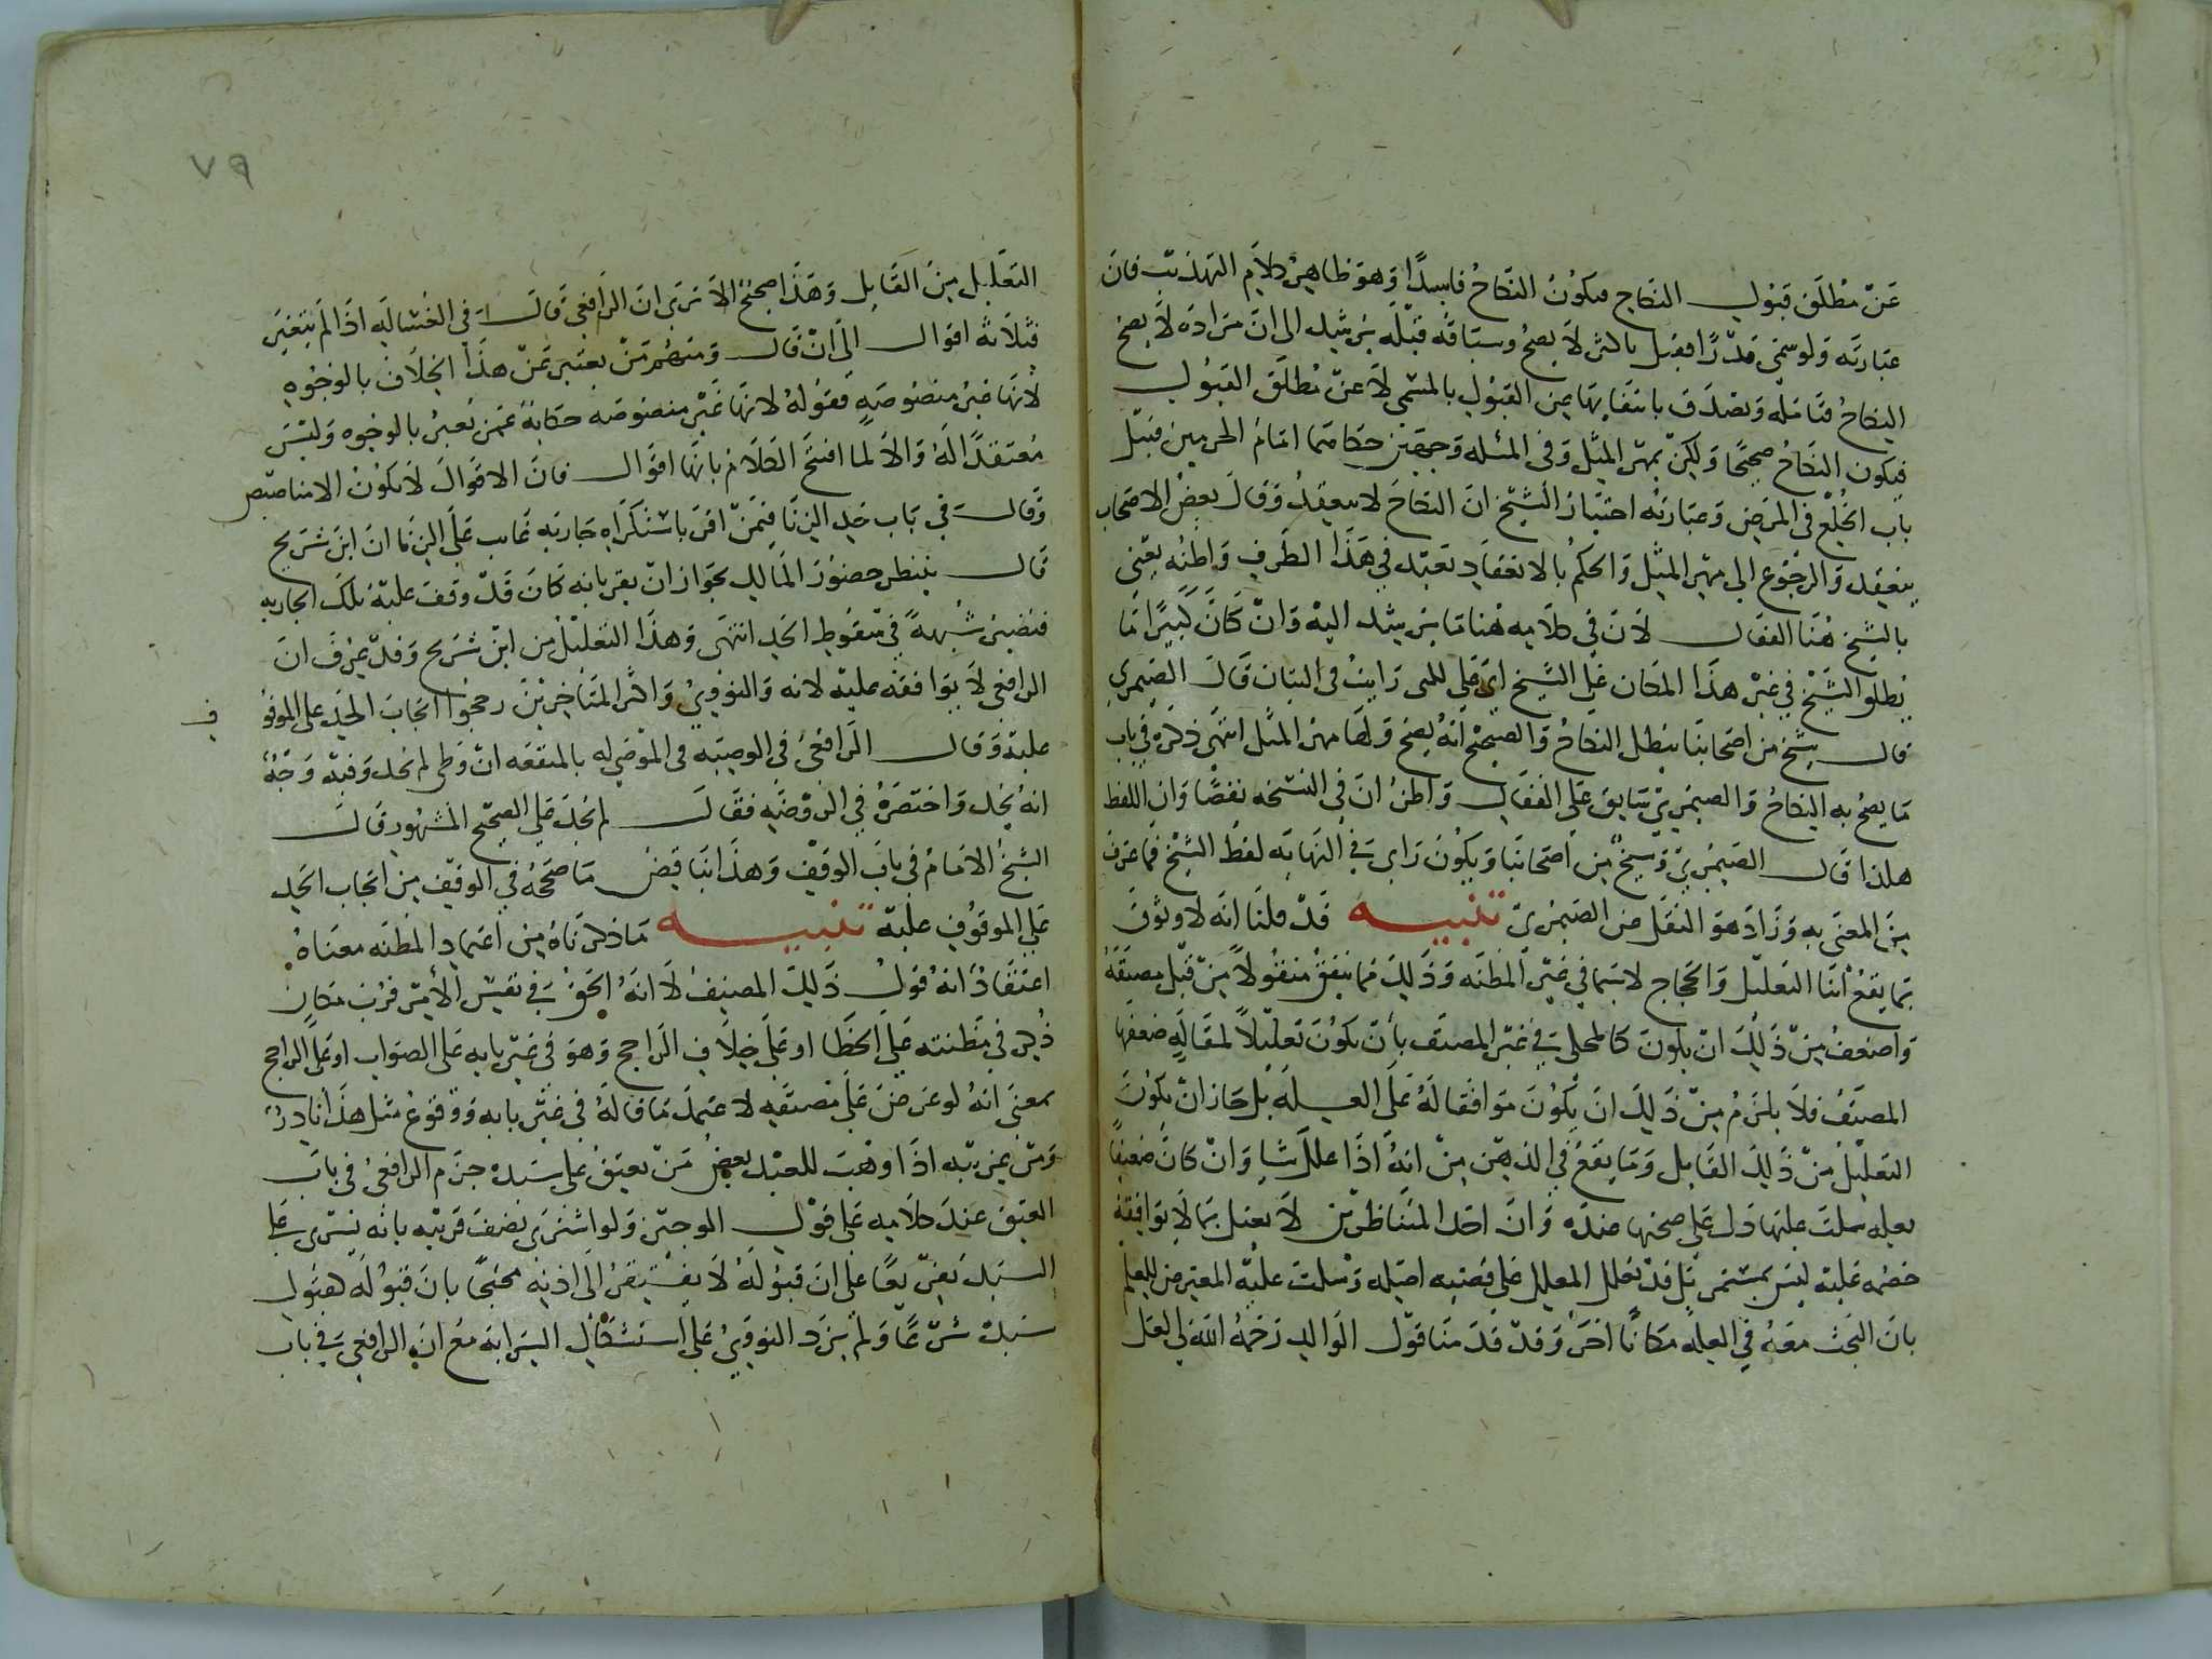 عَنْ مُطلَق قبُول النكاح فيكون النكاحُ فاسِدًا وَهوَ ظاهِرُ كلاَمِ التهذيب فانَ
عبَارتَه وَلو سمّى قدْرًا فقبل باكثر لاَ يصحُ وسيَاقه قبْلَه يرشد الى انَ مرَادَه لاَ يصح
النكاحُ فتَامله وَيصَدق بانتفَائها من القبُول بالمسمَّى لاَ عنْ مُطلَق القبُول
فيكون النكاحُ صَحيحًا وَلكِنْ بمهر المثل وَفى المسئله وَجهيْن حكاهما امَامُ الحرمين قبيْل
باب الخلْع في المرَض وَعبَارتهُ احتيَارُ الشيخ انَ النكاحَ لاينعقِدُ وَقالَ بعضُ الاصْحاب
ينعقِد وَالرجُوع الى مهر المثل وَالحكمُ بالانعقاد بَعيْد في هَذَا الطرف وَاظنُه يعنى
بالشيخ هُنَا القفال لاَنَ في كلاَمه هُنا مَا يرشد اليْه وَانْ كَانَ كثِيرًا مَا
يطلق الشيْخ في غيْر هَذَا المكان عَلى الشيخ ابى عَلى رَايتُ في البيَان قَالَ الصَيمري
قال شيْخ من اصحَابنَا يبْطل النكاحُ وَالصحيْح انهُ يصح وَلهَا مهرُ المثل انتهى ذكرَهُ في باب
مَا يصحُ به النكاحُ وَالصيمريّ سَابق عَلى القفال وَاظنُ انَ في النسْخه نقصًا وَانَ اللفظ
هكذا قال الصيمريّ وَشيخٌ مِن اصْحابنَا وَيكُونَ رَاى في النهَايَه لفظ الشيْخ فمَا عرف
مِن المعنى به وَزَادَ هوَ النقل عن الصَيمرىّ تنبيه قدْ قلنَا انَه لاَ وثوقَ
بمَا يقعُ اثنَا التعليْل وَالحجَاج لاسَيما في غيْر المظنَه وَذَلِكَ فيمَا يتفقُ منقُولاً منْ قبْل مصنفه
وَاضعَفُ مِنْ ذَلِكَ انْ يكونَ كالمحكى في غيْر المصنَف بأنْ يكُونَ تعليْلاً لمقَالَهٍ ضعفهَا
المصنفُ فلاَ يلزَمُ منْ ذَلِكَ انْ يكُونَ موَافقا لَهُ عَلى العلهِ بَل جَاز انْ يكُونَ
التعليْلُ مِنْ ذَلِكَ القَايل وَمَا يقعُ في الذهن مِنْ انهُ اذَا عللَ شيا وَانْ كانَ ضعيفًا
بعلهٍ سكتَ عليْهَا دَل عَلى صحتهَا عندَه وَانَ احَدَ المتنَاظريْن لاَ يعَلل بمَا لاَ يوَافقهُ
خصْمه عَليْه ليسَ بمستمر بَل قدْ يعَلل المعلل عَلى قضيَه اصْله وَسكتَ عليْه المعترض للعلم
بانَ البَحث معَهُ في العلهِ مَكانًا اخَرَ وَقدْ قدَمنَا قوْل الوَالِد رَحَمهُ الله لعَل
٧٩
التعلَيل مِنَ القَايل وَهَذَا صَحيحٌ الاَ ترَى انَ الرَافعى قَالَ في الغسَّاله اذَا لمْ يتغير
فثلاثه اقوَال الى انْ قَال وَمنهُم مَنْ يعَبر عَنْ هذَا الخلَاف بالوُجُوه
لانَهَا غيْر منصُوصَهٍ فقوْلهُ لانهَا غيْر منصُوصَه حكايَهٌ عَمن يُعبرُ بالوُجُوه وَليْسَ
مُعتقدًا لهُ وَالاَ لما افتتح الكلاَمَ بانهَا اقوَال فانَ الاقوَالَ لاَ تكونُ الامنَاصِيص
وَقالَ في بَاب حَد الزنَا فيمَنْ اقرَ باستكرَاهِ جَاريَهِ غَايب عَلى الزنَا انَ ابنَ شرَيح
قَال ينتظر حضُورَ المالِك بجَوَاز انْ يقر بانه كانَ قَدْ وقفَ عليْه تلكَ الجاريه
فتصيرُ شبْهةً في سقُوط الحَد انتهَى وَهذَا التعليْلُ مِن ابْن شرَيح وَقدْ يُعرَفُ انَ
الرَافعى لاَ يوَافقهُ عليْه لانه وَالنووىُ وَاكثر المتَاخرينَ رجحُوا ايجَابَ الحَد على الموقو
ف
عليْه وَقال الرَافعىُ في الوصيَه في الموْصَى له بالمنفعَه انْ وَطى لم يحَد وَفيْه وَجهٌ
انهُ يحَد وَاختصَرَهُ في الرَوْضَهِ فقَال لم يحَد عَلى الصَحِيْح المشهُور قَال
الشيخُ الامَام في بَاب الوقْف وَهذَا ينَاقضُ مَا صَححَهُ في الوقْف مِن ايجَاب الحَد
عَلى الموقوُف عليْه تنبيه مَا ذكرنَاهُ مِن اعتماد المظنَه معنَاهُ
اعتقَادُ انهُ قوْل ذَلِكَ المصنِفُ لاَ انهُ الحَقُ في نفسِ الأمْر فرُبَ مَكانٍ
ذُكِر في مَظنته عَلى الخَطَا او عَلى خِلاَفِ الرَاجح وَهوَ في غيْر بَابه عَلى الصوَاب او عَلى الرَاجح
بمعنى انهُ لو عُرضَ عَلى مُصنفهِ لاعتمدَ مَا قالَهُ في غيْر بابه وَوقوعُ مثل هذَا نَادرُ
وَمنْ غريْبه اذَا وهبَ للعبْد بعض مَنْ يعتِقُ عَلى سَيده جزَم الرَافعىُ في باب
العتق عندَ كلاَمِه عَلى قوْل الوَجيْز وَلو اشترَى نصفَ قريْبه بانَه يسْرى عَلى
السَيد تفريْعًا عَلى انَ قبُولَهُ لاَ يفتَقرُ الى اذنِه محتجًا بانَ قبُولَه كقبُولِ
سَيدهْ شرْعًا وَلمْ يزد النووىُ عَلى اسْتشكَال السرَايَه مَع انَ الرَافعى في باب